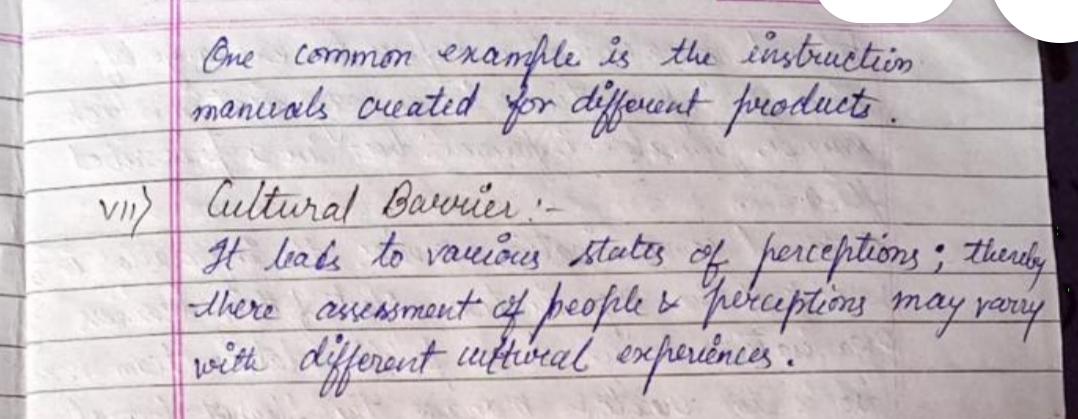 One common example is the instruction
manuals created for different products.
VII) Cultural Barrier :-
It leads to various states of perceptions; thereby
there assessment of people & perceptions may varry
with different cultural experiences.